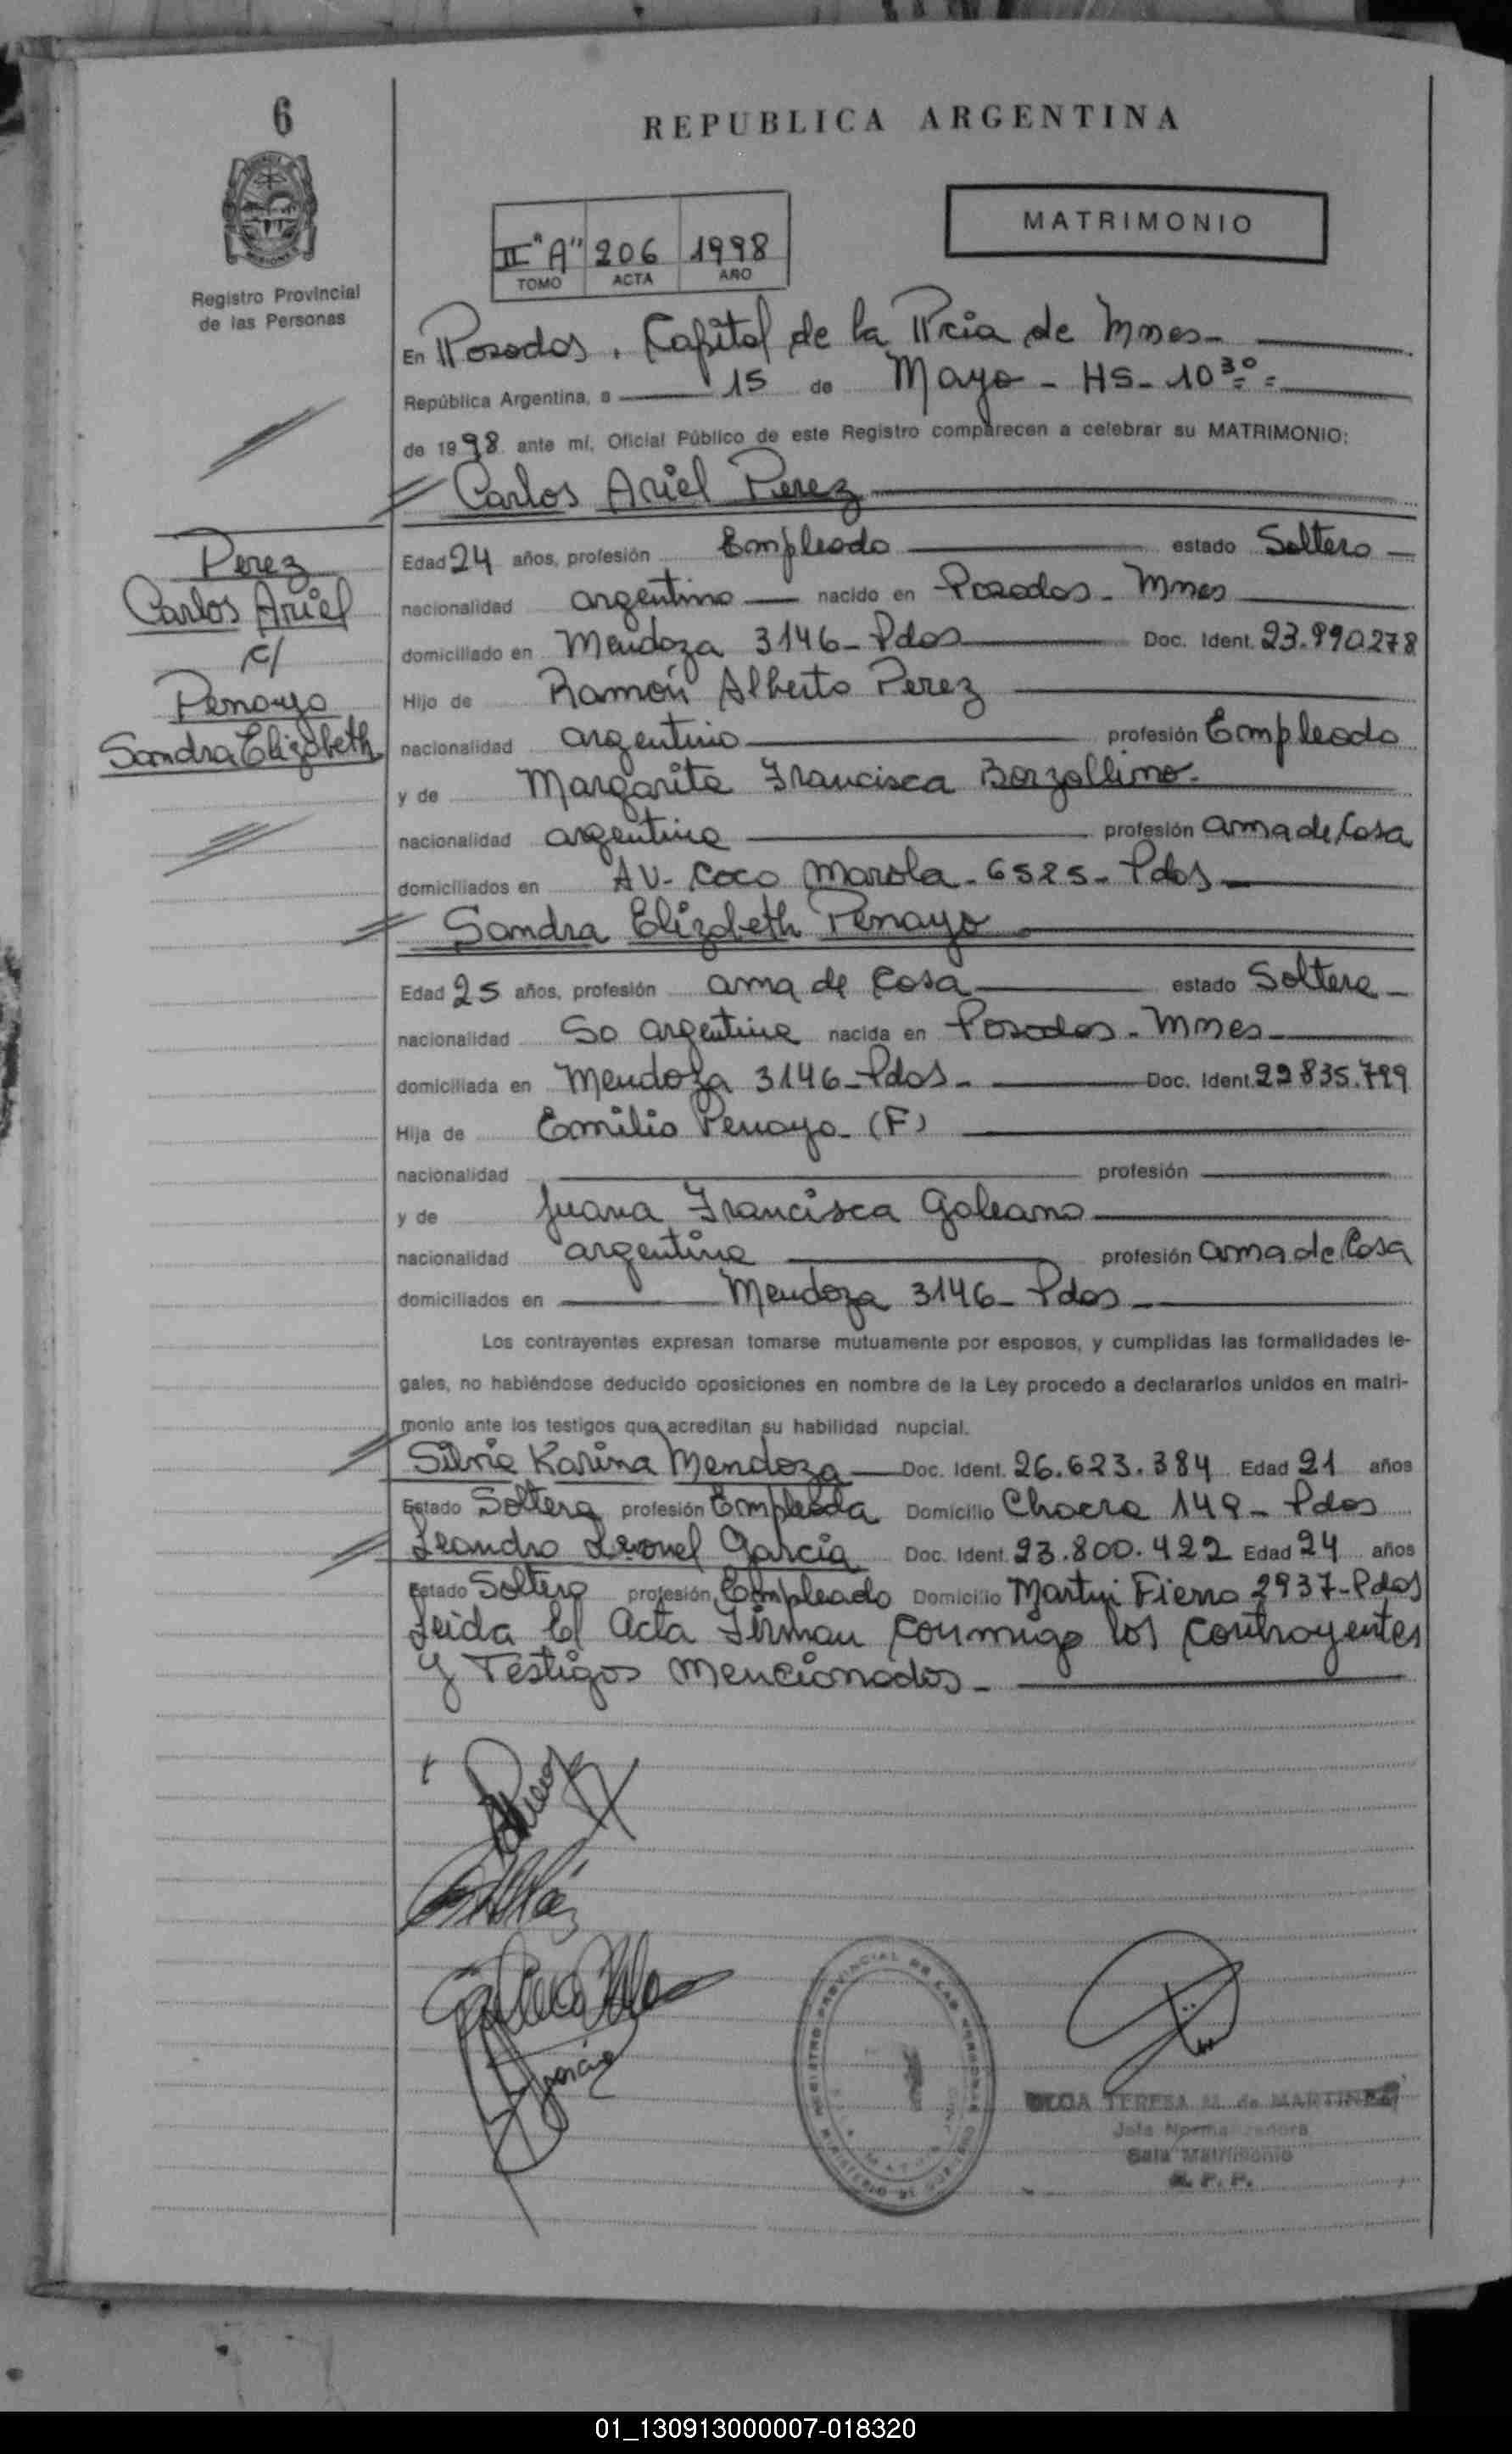 6
REPUBLICA ARGENTINA
MATRIMONIO
II "A" 206 1998
TOMO ACTA AÑO
Registro Provincial
de las Personas
En Posadas, Capital de la Pcia de Mnes-
República Argentina, a 15 de Mayo - HS- 10 30 =
de 1998 ante mí, Oficial Público de este Registro comparecen a celebrar su MATRIMONIO:
Carlos Ariel Perez
Perez
Carlos Ariel
c/
Penayo
Sandra Elizabeth
Edad 24 años, profesión Empleado estado Soltero
nacionalidad argentino nacido en Posadas - Mnes
domiciliado en Mendoza 3146 - Pdas Doc. Ident. 23.990.278
Hijo de Ramón Alberto Perez
nacionalidad argentino profesión Empleado
y de Margarita Francisca Borzallino.
nacionalidad argentina profesión ama de Casa
domiciliados en AV- Coco Marola - 6525 - Pdas
Sandra Elizabeth Penayo
Edad 25 años, profesión ama de Casa estado Soltera
nacionalidad So argentina nacida en Posadas - Mnes
domiciliada en Mendoza 3146 - Pdas - Doc. Ident. 22835.799
Hija de Emilio Penayo - (F)
nacionalidad profesión
y de Juana Francisca Galeano
nacionalidad argentina profesión ama de Casa
domiciliados en Mendoza 3146 - Pdas
Los contrayentes expresan tomarse mutuamente por esposos, y cumplidas las formalidades le-
gales, no habiéndose deducido oposiciones en nombre de la Ley procedo a declararlos unidos en matri-
monio ante los testigos que acreditan su habilidad nupcial.
Silvia Karina Mendoza Doc. Ident. 26.623.384 Edad 21 años
Estado Soltera profesión Empleada Domicilio Chacra 149 - Pdas
Leandro Leonel Garcia Doc. Ident. 23.800.422 Edad 24 años
Estado Soltero profesión Empleado Domicilio Martin Fierro 2937 - Pdas
Leida El Acta Firman Conmigo los Contrayentes
y Testigos Mencionados -
OLGA TERESA M. de MARTINEZ
Sala Matrimonio
R. P. P.
01_130913000007-018320